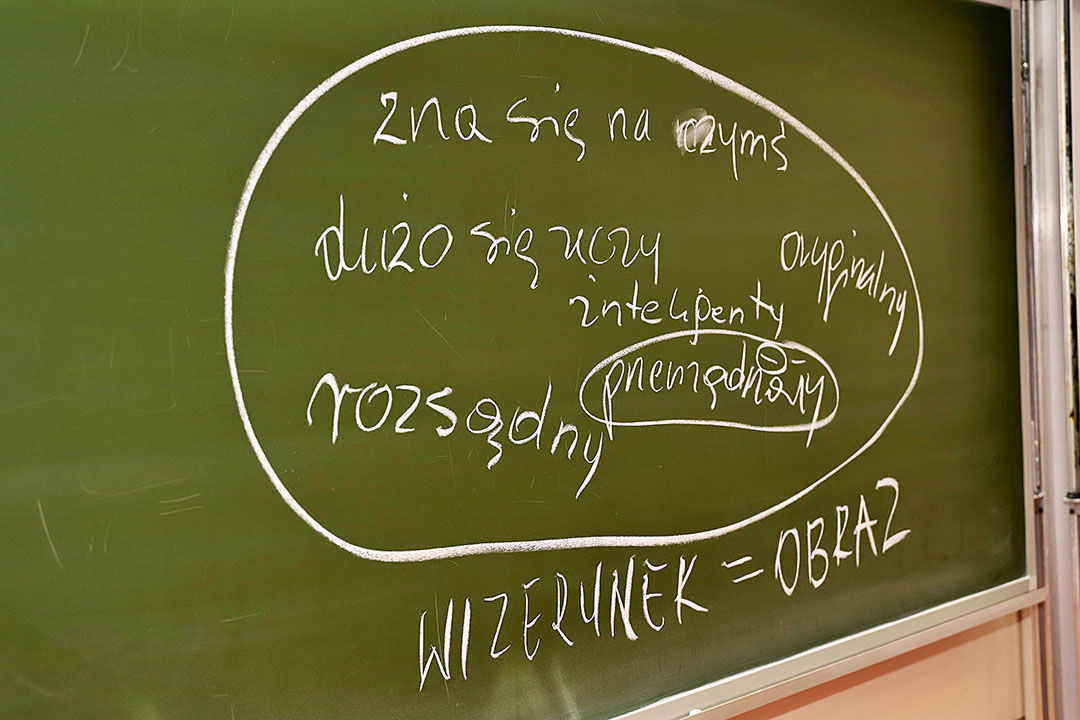 zna się na czymś
dużo się uczy
oryginalny
inteligenty
przemądrzały
rozsądny
WIZERUNEK = OBRAZ